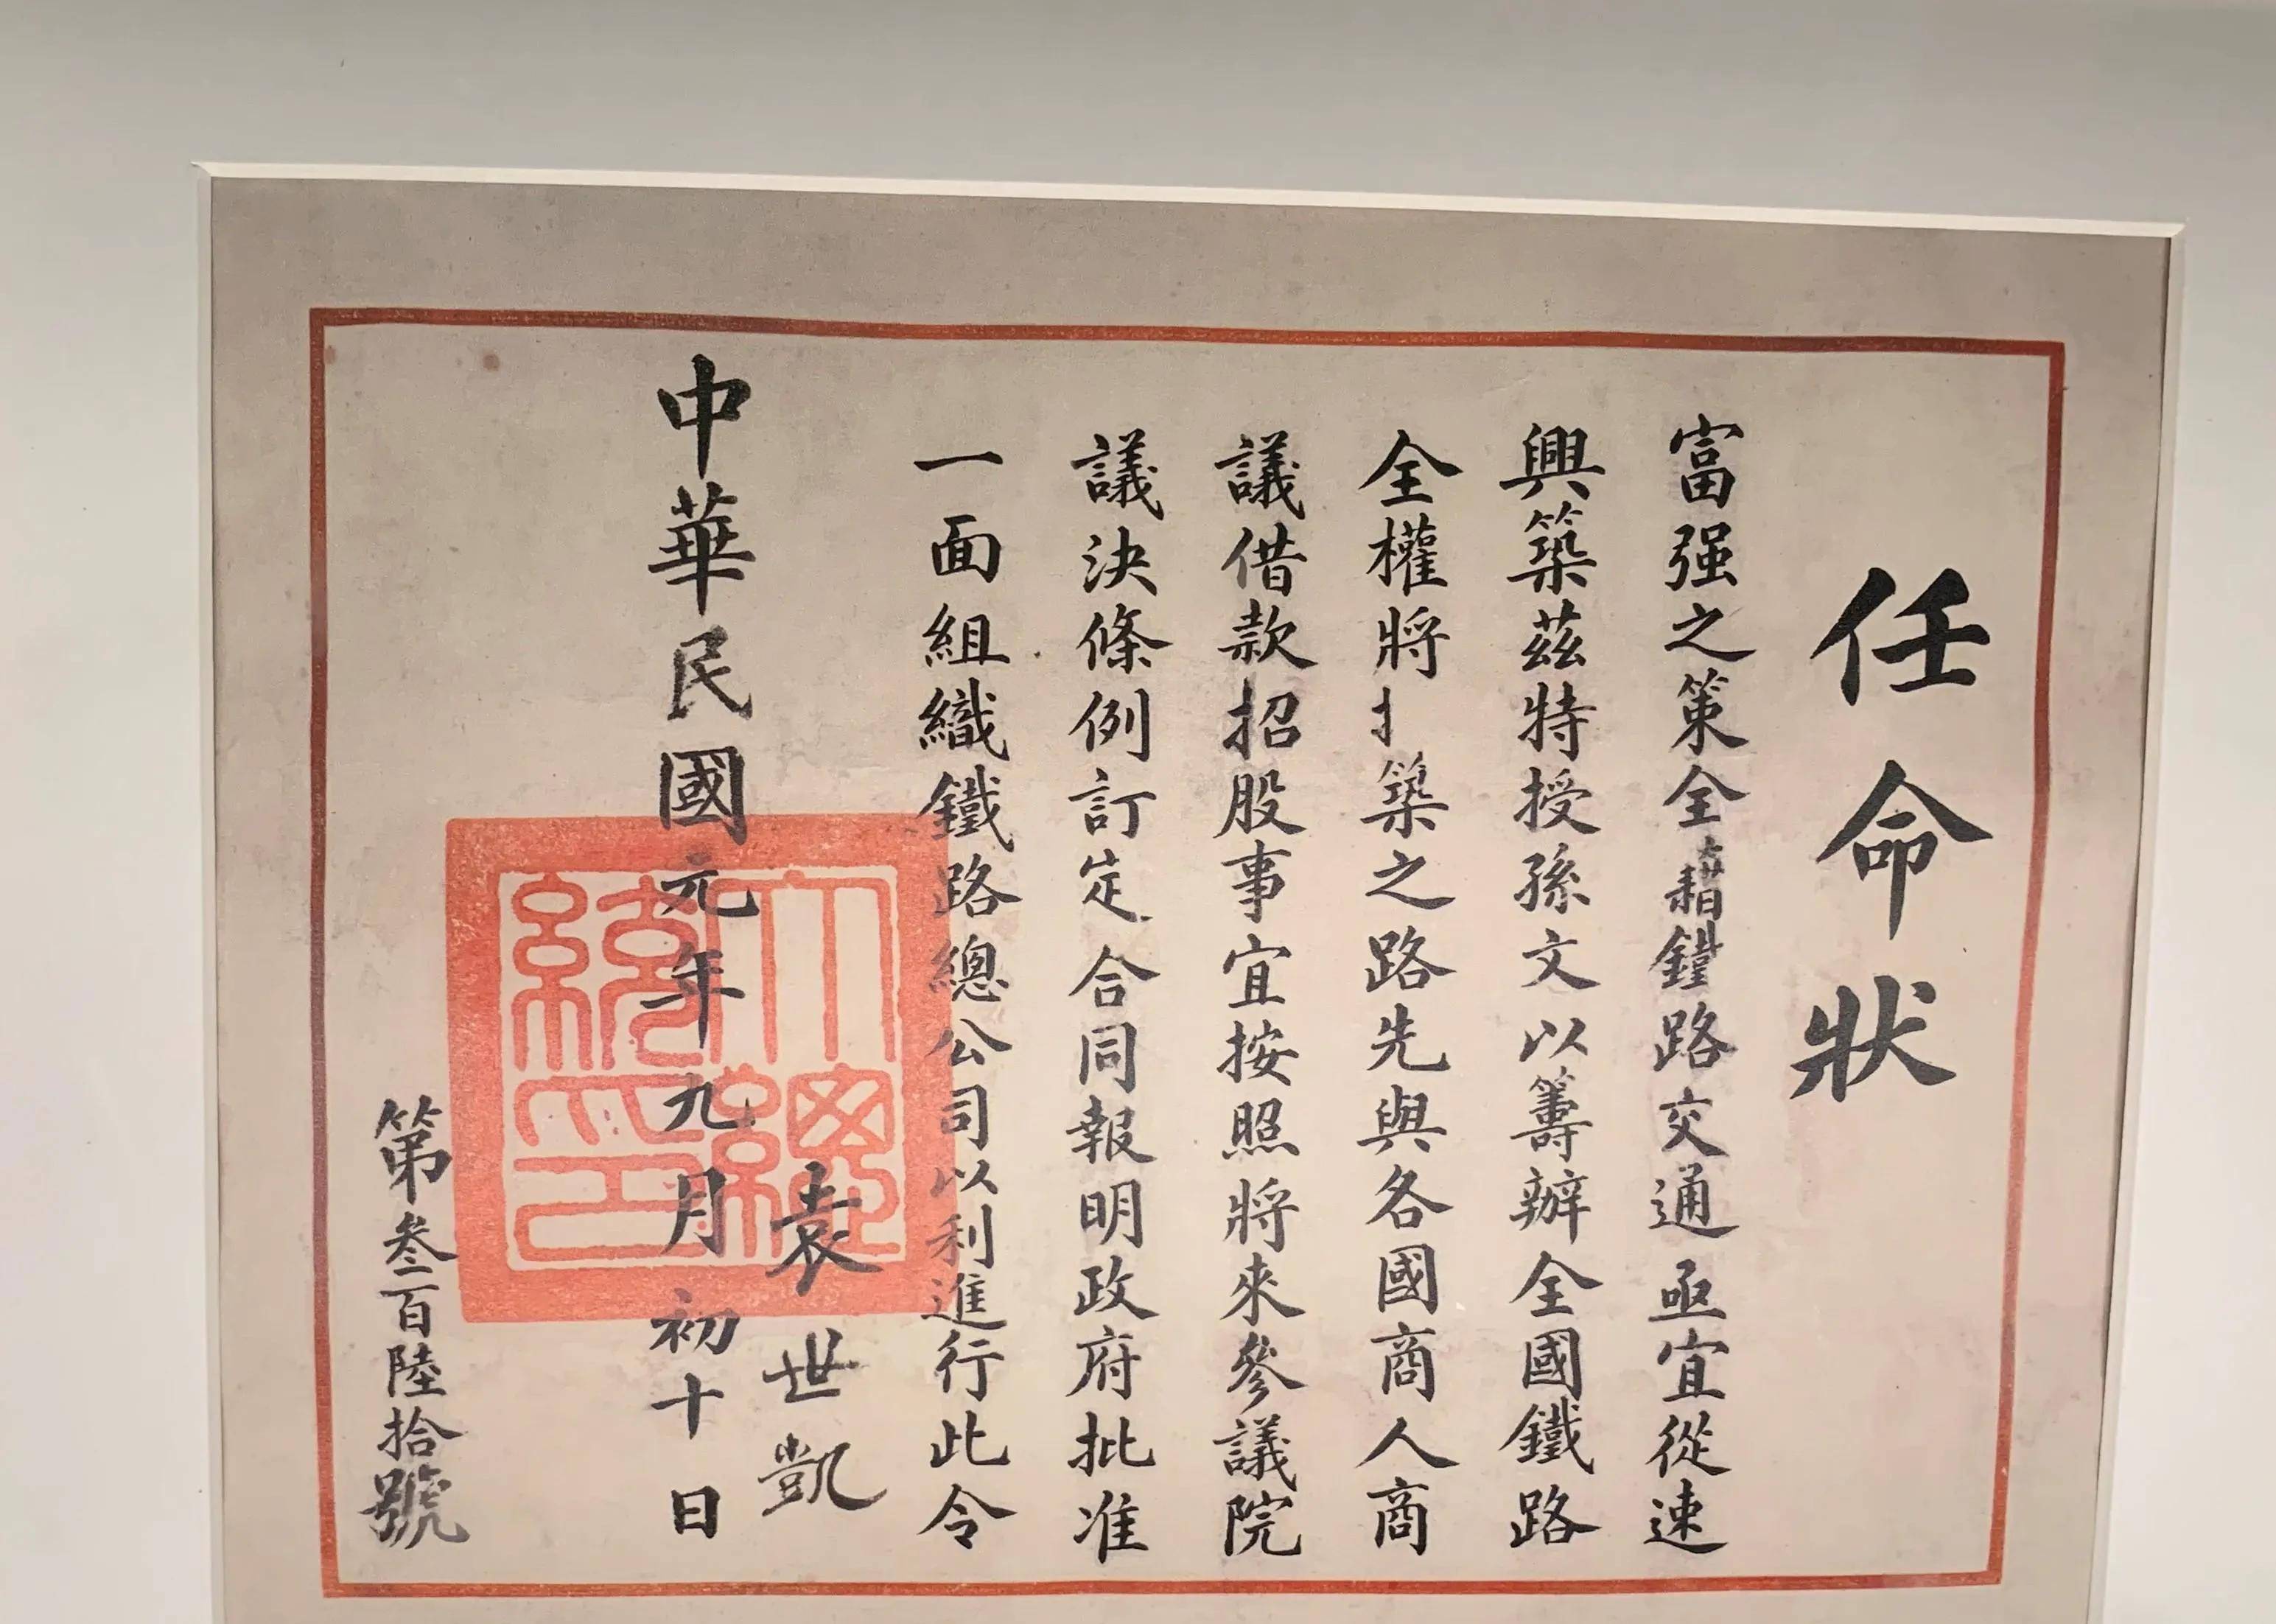 任命狀
富强之策全藉鐵路交通亟宜從速
興築茲特授孫文以籌辦全國鐵路
全權將築之路先與各國商人商
議借款招股事宜按照將來參議院
議決條例訂定合同報明政府批准
一面組織鐵路總公司以利進行此令
袁世凱
中華民國元年九月初十日
大總
統印
第叁百陸拾號